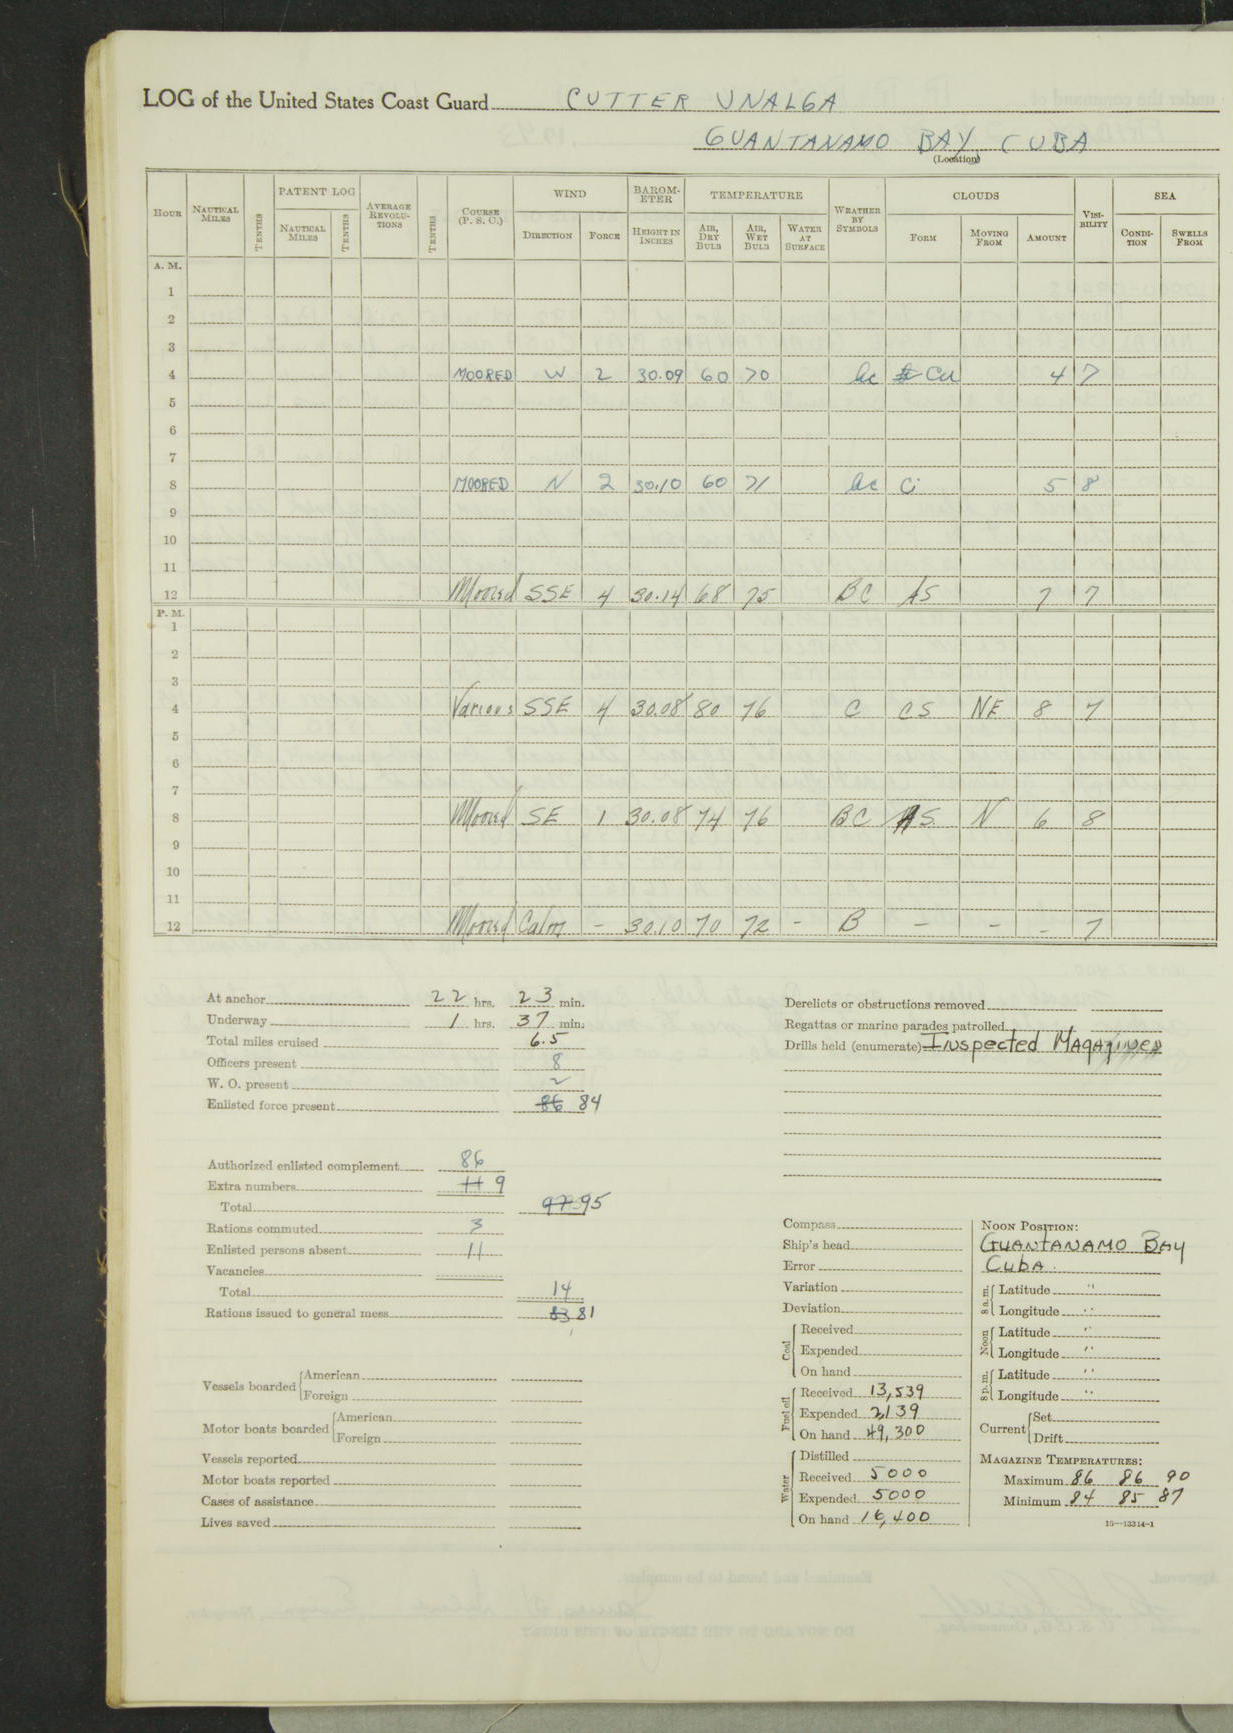 LOG of the United States Coast Guard CUTTER UNALGA
GUANTANAMO BAY, CUBA
(Location)
HOUR NAUTICAL MILES TENTHS PATENT LOG NAUTICAL MILES TENTHS AVERAGE REVOLU-TIONS TENTHS COURSE (P. S. C.) WIND DIRECTION FORCE BAROM-ETER HEIGHT IN INCHES TEMPERATURE AIR, DRY BULB AIR, WET BULB WATER AT SURFACE WEATHER BY SYMBOLS CLOUDS FORM MOVING FROM AMOUNT VISI-BILITY SEA CONDI-TION SWELLS FROM
A. M.
1
2
3
4 MOORED W 2 30.09 60 70 bc Cu 4 7
5
6
7
8 MOORED N 2 30.10 60 71 bc Ci 5 8
9
10
11
12 Moored SSE 4 30.14 68 75 BC AS 7 7
P. M.
1
2
3
4 Various SSE 4 30.08 80 76 C CS NE 8 7
5
6
7
8 Moored SE 1 30.08 74 76 BC AS N 6 8
9
10
11
12 Moored Calm - 30.10 70 72 - B - - - 7
At anchor 22 hrs. 23 min.
Underway 1 hrs. 37 min.
Total miles cruised 6.5
Officers present 8
W. O. present 2
Enlisted force present 86 84
Authorized enlisted complement 86
Extra numbers 11 9
Total 97 95
Rations commuted 3
Enlisted persons absent 11
Vacancies
Total 14
Rations issued to general mess 83 81
Vessels boarded American
Foreign
Motor boats boarded American
Foreign
Vessels reported
Motor boats reported
Cases of assistance
Lives saved
Derelicts or obstructions removed
Regattas or marine parades patrolled
Drills held (enumerate) Inspected Magazines
Compass
Ship's head
Error
Variation
Deviation
Coal Received
Expended
On hand
Fuel oil Received 13,539
Expended 2,139
On hand 49,300
Water Distilled
Received 5000
Expended 5000
On hand 16,400
NOON POSITION:
GUANTANAMO BAY
CUBA.
8 a.m. Latitude "
Longitude "
Noon Latitude "
Longitude "
8 p.m. Latitude "
Longitude "
Current Set
Drift
MAGAZINE TEMPERATURES:
Maximum 86 86 90
Minimum 84 85 87
16—13314-1